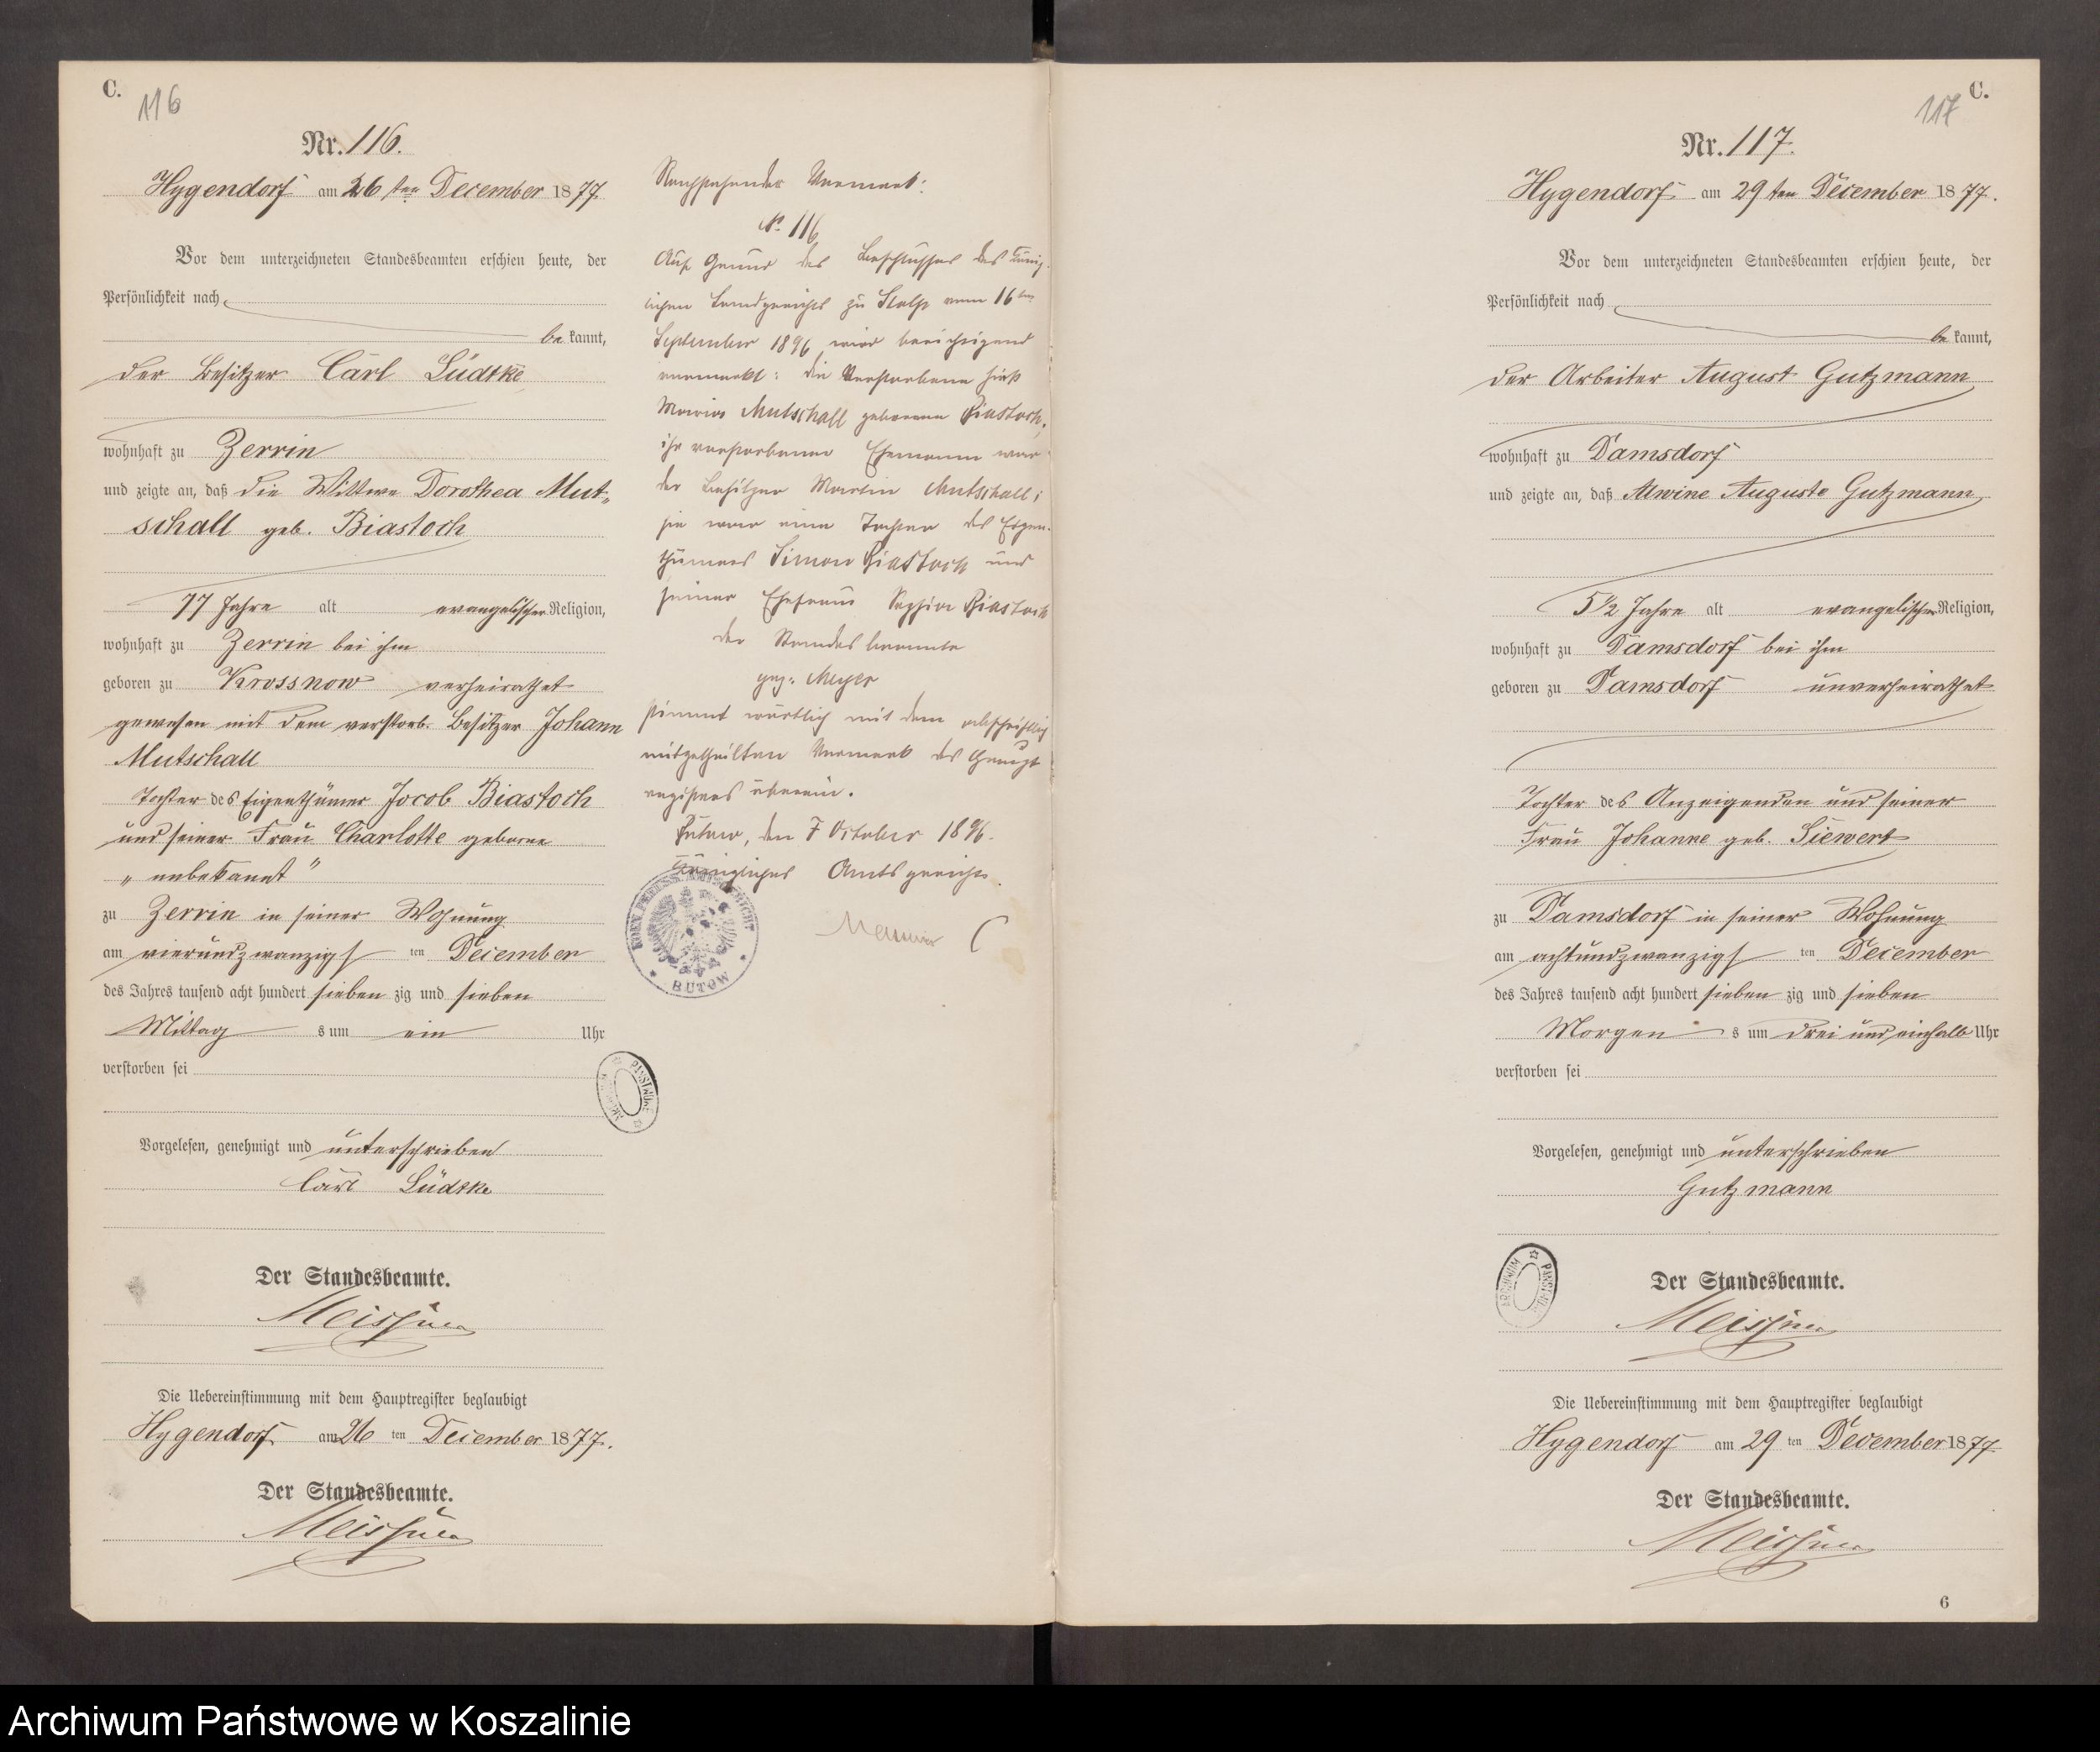 C.
116
Nr. 116.
Hygendorf am 26ten December 1877.
Vor dem unterzeichneten Standesbeamten erschien heute, der
Persönlichkeit nach
bekannt,
der Besitzer Carl Lüdtke
wohnhaft zu Zerrin
und zeigte an, daß die Wittwe Dorothea Mut-
schall geb. Biastoch
77 Jahre alt evangelischer Religion,
wohnhaft zu Zerrin bei ihm
geboren zu Krossnow verheirathet
gewesen mit dem verstorb. Besitzer Johann
Mutschall
Tochter des Eigenthümer Jocob Biastoch
und seiner Frau Charlotte geborne
„ unbekannt "
zu Zerrin in seiner Wohnung
am vierundzwanzigsten December
des Jahres tausend acht hundert siebenzig und sieben
Mittags um ein Uhr
verstorben sei
Vorgelesen, genehmigt und unterschrieben
Carl Lüdtke
Der Standesbeamte.
Meissner
Die Uebereinstimmung mit dem Hauptregister beglaubigt
Hygendorf am 26ten December 1877.
Der Standesbeamte.
Meissner
Nachstehender Vermerk:
No 116
Auf Grund des Beschlusses des König-
lichen Landgerichts zu Stolp vom 16ten
September 1896 wird berichtigend
vermerkt: die Verstorbene hieß
Mutschall geborene Biastoch;
ihr verstorbener Ehemann war
der Besitzer Martin Mutschall;
sie war eine Tochter des Eigen-
thümers Simon Biastock und
seiner Ehefrau Sophie Biastock
der Standesbeamte
gez. Meyer
stimmt wörtlich mit dem abschriftlich
mitgetheilten Vermerk des Haupt
registers überein.
Bütow, den 7 October 1896.
Königliches Amtsgericht.
KOEN. PREUSS. AMTSGERICHT
* BUTOW *
ARCHIWUM PAŃSTWOWE
C.
117
Nr. 117.
Hygendorf am 29ten December 1877.
Vor dem unterzeichneten Standesbeamten erschien heute, der
Persönlichkeit nach
bekannt,
der Arbeiter August Gutzmann
wohnhaft zu Damsdorf
und zeigte an, daß Alwine Auguste Gutzmann,
5 1/2 Jahre alt evangelischer Religion,
wohnhaft zu Damsdorf bei ihm
geboren zu Damsdorf unverheirathet
Tochter des Anzeigenden und seiner
Frau Johanne geb. Siewert
zu Damsdorf in seiner Wohnung
am achtundzwanzigsten December
des Jahres tausend acht hundert siebenzig und sieben
Morgens um drei und einhalb Uhr
verstorben sei
Vorgelesen, genehmigt und unterschrieben
Gutzmann
ARCHIWUM PAŃSTWOWE
Der Standesbeamte.
Meissner
Die Uebereinstimmung mit dem Hauptregister beglaubigt
Hygendorf am 29ten December 1877
Der Standesbeamte.
Meissner
6
Archiwum Państwowe w Koszalinie